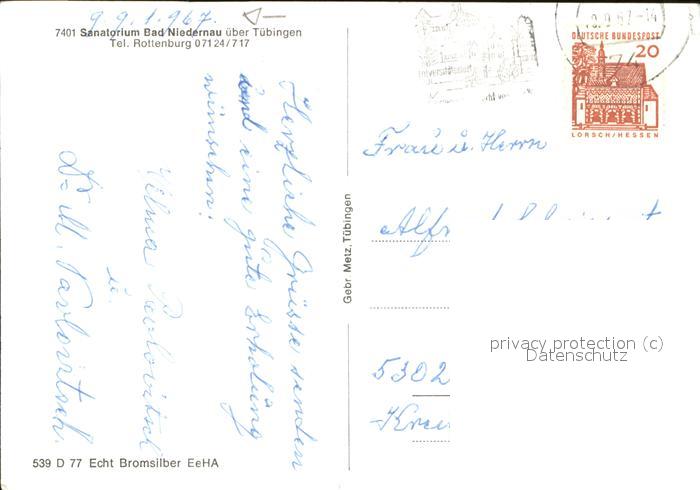 9.9.1967.
7401 Sanatorium Bad Niedernau über Tübingen
Tel. Rottenburg 07124/717
Herzliche Grüsse senden
und eine gute Erholung
wünschen:
Wilma Pavlovitsch
u.
Dr. M. Pavlovitsch.
539 D 77 Echt Bromsilber EeHA
Gebr Metz, Tübingen
DEUTSCHE BUNDESPOST
20
LORSCH/HESSEN
Frau u. Herrn
Alfr
5302
privacy protection (c)
Datenschutz